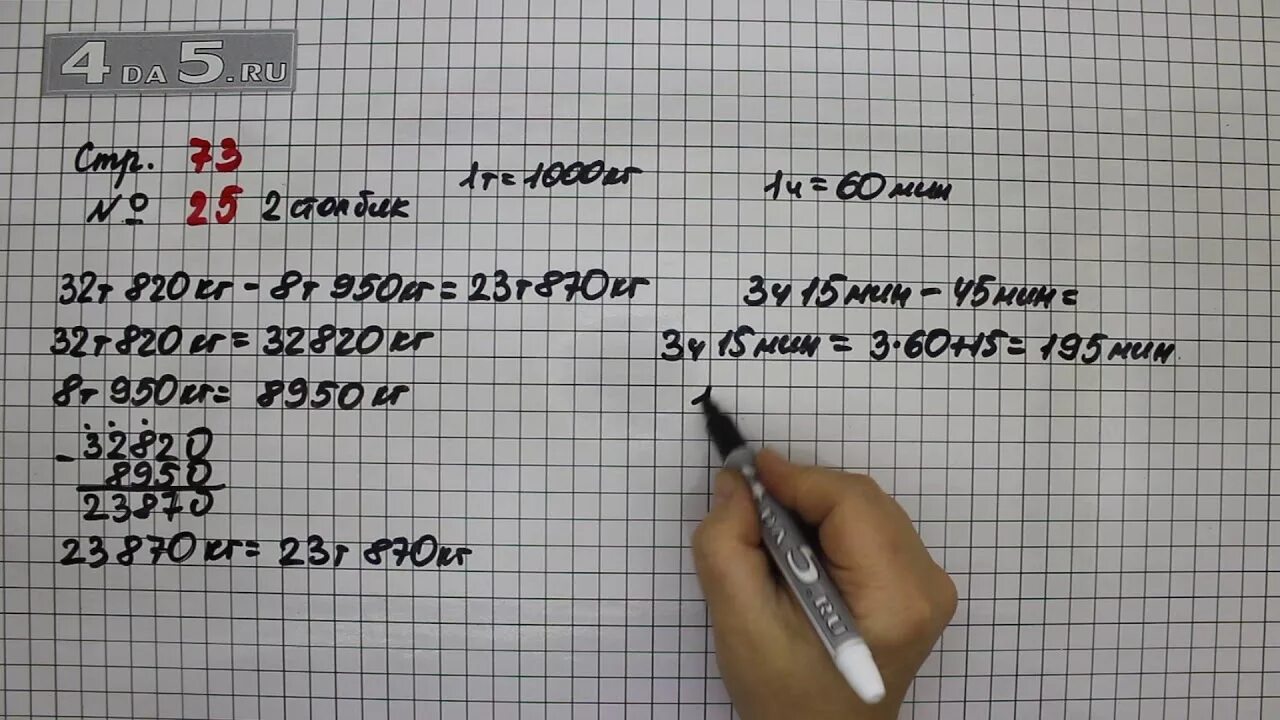 4DA5.RU
Стр. 73
№ 25 2 столбик
1т = 1000кг
1ч = 60мин
32т 820кг - 8т 950кг = 23т 870кг
32т 820кг = 32820кг
8т 950кг = 8950кг
- 32820
8950
23870
23870кг = 23т 870кг
3ч 15мин - 45мин =
3ч 15мин = 3·60+15 = 195мин
1
DA5.RU